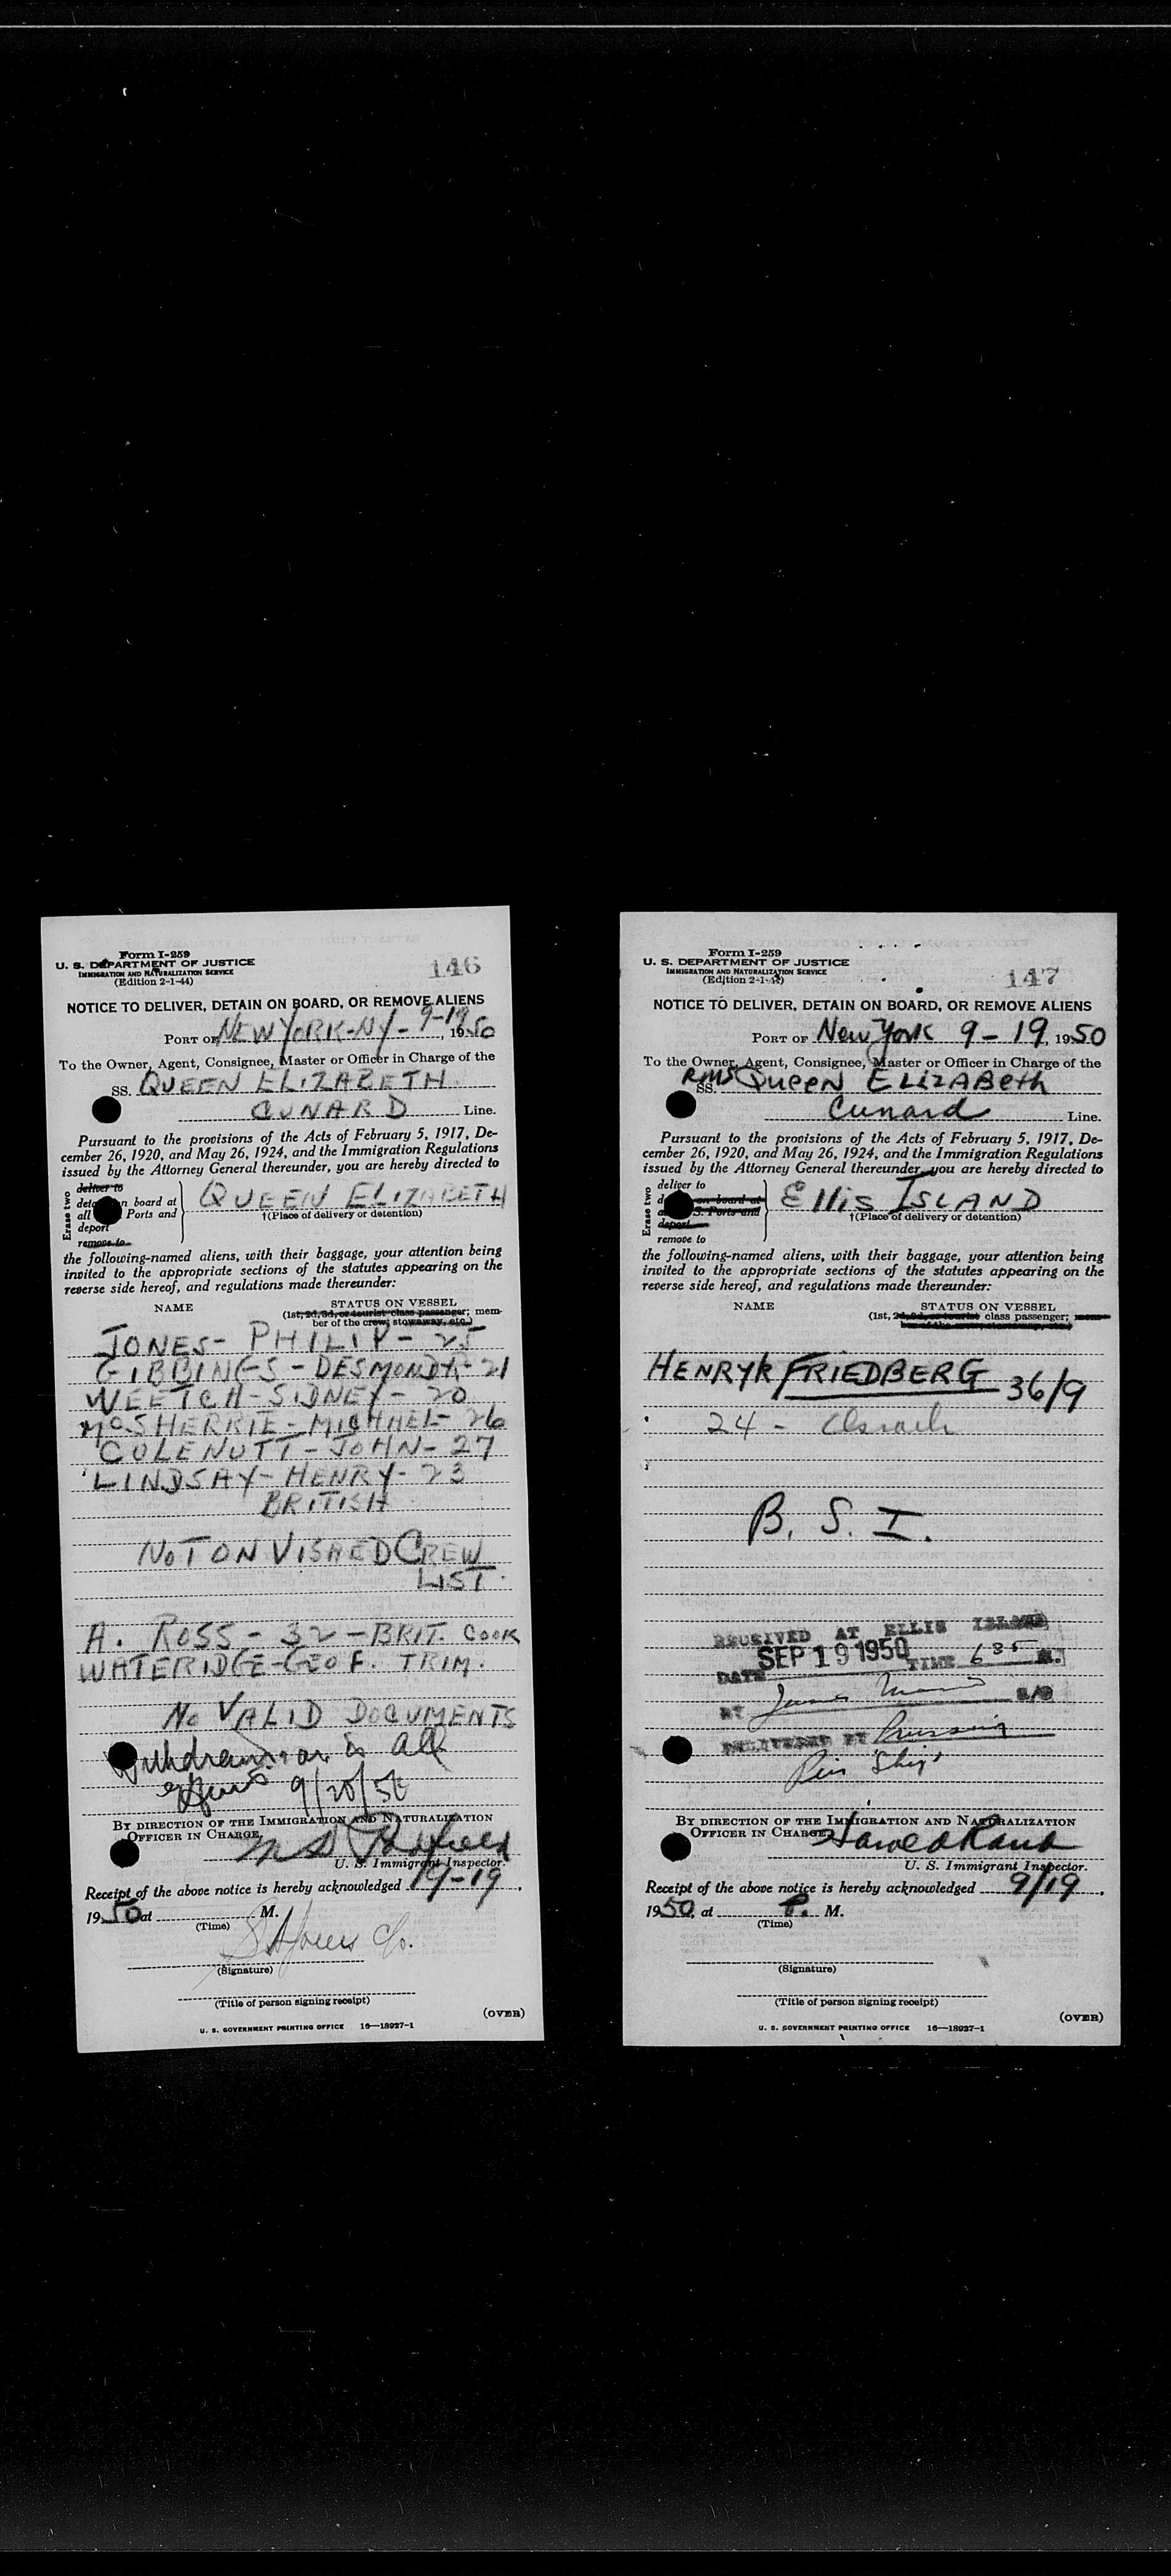 Form I-259
U. S. DEPARTMENT OF JUSTICE
IMMIGRATION AND NATURALIZATION SERVICE
(Edition 2-1-44)
146
NOTICE TO DELIVER, DETAIN ON BOARD, OR REMOVE ALIENS
PORT OF NEW YORK-NY- 9-19, 1950
To the Owner, Agent, Consignee, Master or Officer in Charge of the
SS. QUEEN ELIZABETH
CUNARD Line.
Pursuant to the provisions of the Acts of February 5, 1917, De-
cember 26, 1920, and May 26, 1924, and the Immigration Regulations
issued by the Attorney General thereunder, you are hereby directed to
Erase two
deliver to
on board at
all Ports and
deport
remove to
QUEEN ELIZABETH
†(Place of delivery or detention)
the following-named aliens, with their baggage, your attention being
invited to the appropriate sections of the statutes appearing on the
reverse side hereof, and regulations made thereunder:
NAME STATUS ON VESSEL
(1st, 2d, 3d, or tourist class passenger; mem-
ber of the crew; stowaway, etc.)
JONES- PHILIP- 25
GIBBINGS - DESMOND - 21
WEETCH - SIDNEY - 20
McSHERRIE - MICHAEL - 26
COLENUTT - JOHN - 27
LINDSAY - HENRY - 23
BRITISH
NOT ON VISHED CREW
LIST.
A. ROSS - 32 - BRIT. COOK
WHTERIDGE - GEO F. TRIM.
NO VALID DOCUMENTS
in all
9/20/50
BY DIRECTION OF THE IMMIGRATION AND NATURALIZATION
OFFICER IN CHARGE
U. S. Immigrant Inspector.
Receipt of the above notice is hereby acknowledged 9-19,
1950 at M.
(Time)
(Signature)
(Title of person signing receipt)
(OVER)
U. S. GOVERNMENT PRINTING OFFICE 16—18927-1
Form I-259
U. S. DEPARTMENT OF JUSTICE
IMMIGRATION AND NATURALIZATION SERVICE
(Edition 2-1-44)
147
NOTICE TO DELIVER, DETAIN ON BOARD, OR REMOVE ALIENS
PORT OF New York 9-19, 1950
To the Owner, Agent, Consignee, Master or Officer in Charge of the
RMS SS. QUEEN ELIZABETH
Cunard Line.
Pursuant to the provisions of the Acts of February 5, 1917, De-
cember 26, 1920, and May 26, 1924, and the Immigration Regulations
issued by the Attorney General thereunder, you are hereby directed to
Erase two
deliver to
on board at
S. Ports and
deport
remove to
Ellis ISLAND
†(Place of delivery or detention)
the following-named aliens, with their baggage, your attention being
invited to the appropriate sections of the statutes appearing on the
reverse side hereof, and regulations made thereunder:
NAME STATUS ON VESSEL
(1st, 2d, 3d, or tourist class passenger; mem-
ber of the crew; stowaway, etc.)
HENRYK FRIEDBERG 36/9
24 - Israeli
B. S. I.
RECEIVED AT ELLIS ISLAND
DATE SEP 19 1950 TIME 6 35 M.
BY James
DELIVERED BY
"Ship"
BY DIRECTION OF THE IMMIGRATION AND NATURALIZATION
OFFICER IN CHARGE
U. S. Immigrant Inspector.
Receipt of the above notice is hereby acknowledged 9/19,
1950, at P. M.
(Time)
(Signature)
(Title of person signing receipt)
(OVER)
U. S. GOVERNMENT PRINTING OFFICE 16—18927-1